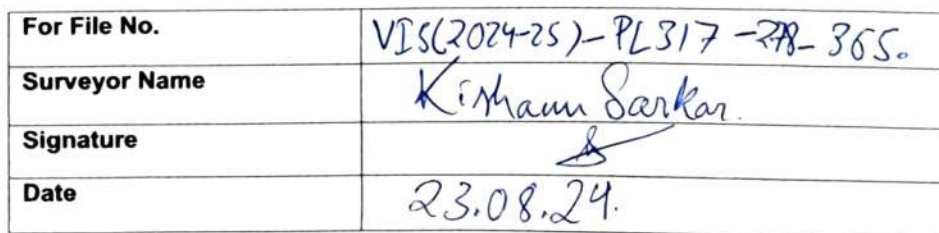 For File No. VIS(2024-25)-PL317-278-365.
Surveyor Name Kishanu Sarkar.
Signature
Date 23.08.24.